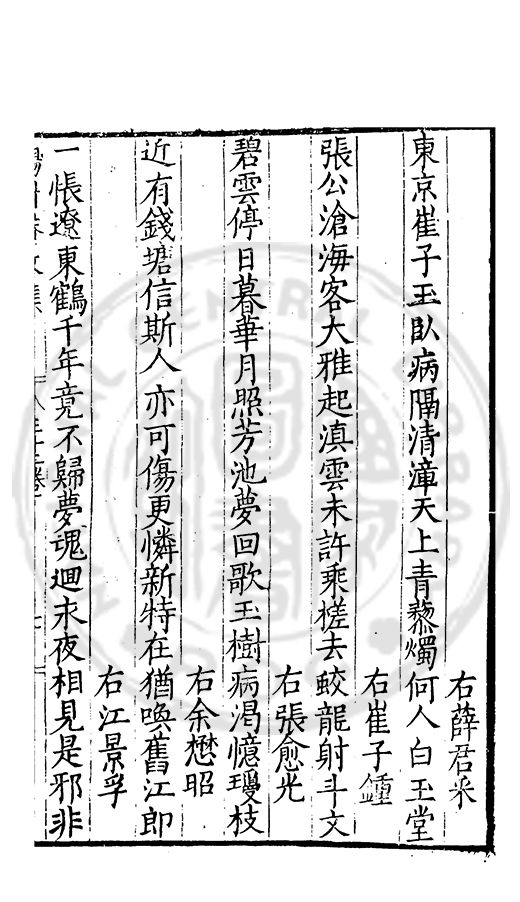 右薛君采
東京崔子玉臥病隔清漳天上青藜燭何人白玉堂
右崔子鍾
張公滄海客大雅起滇雲未許乘槎去蛟龍射斗文
右張愈光
碧雲停日暮華月照芳池夢回歌玉樹病渴憶瓊枝
右余懋昭
近有錢塘信斯人亦可傷更憐新特在猶喚舊江郎
右江景孚
一悵遼東鶴千年竟不歸夢魂迴永夜相見是邪非